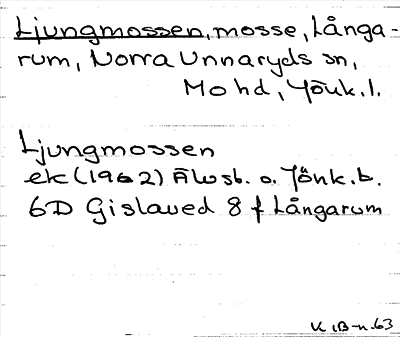 Ljungmossen, mosse, Långa-
rum, Norra Unnaryds sn,
Mo hd, Jönk. l.
Ljungmossen
ek (1962) Älvsb. o. Jönk. b.
6D Gislaved 8 f Långarum
K IB-n. 63